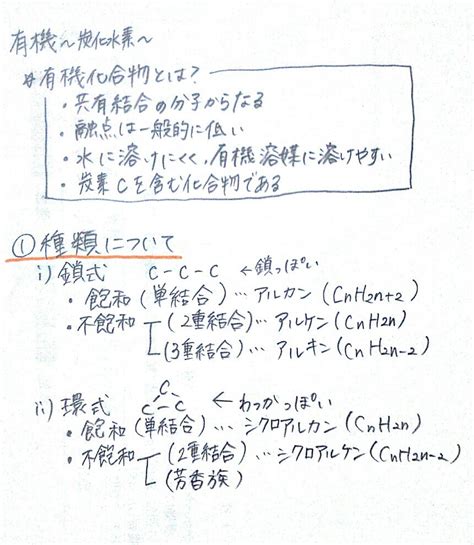 有機〜炭化水素〜
☆有機化合物とは?
・共有結合の分子からなる
・融点は一般的に低い
・水に溶けにくく、有機溶媒に溶けやすい
・炭素Cを含む化合物である
①種類について
i) 鎖式 C-C-C ←鎖っぽい
・飽和(単結合)…アルカン(CnH2n+2)
・不飽和 (2重結合)…アルケン(CnH2n)
(3重結合)…アルキン(CnH2n-2)
ii) 環式 C C-C ←わっかっぽい
・飽和(単結合)…シクロアルカン(CnH2n)
・不飽和 (2重結合)…シクロアルケン(CnH2n-2)
(芳香族)